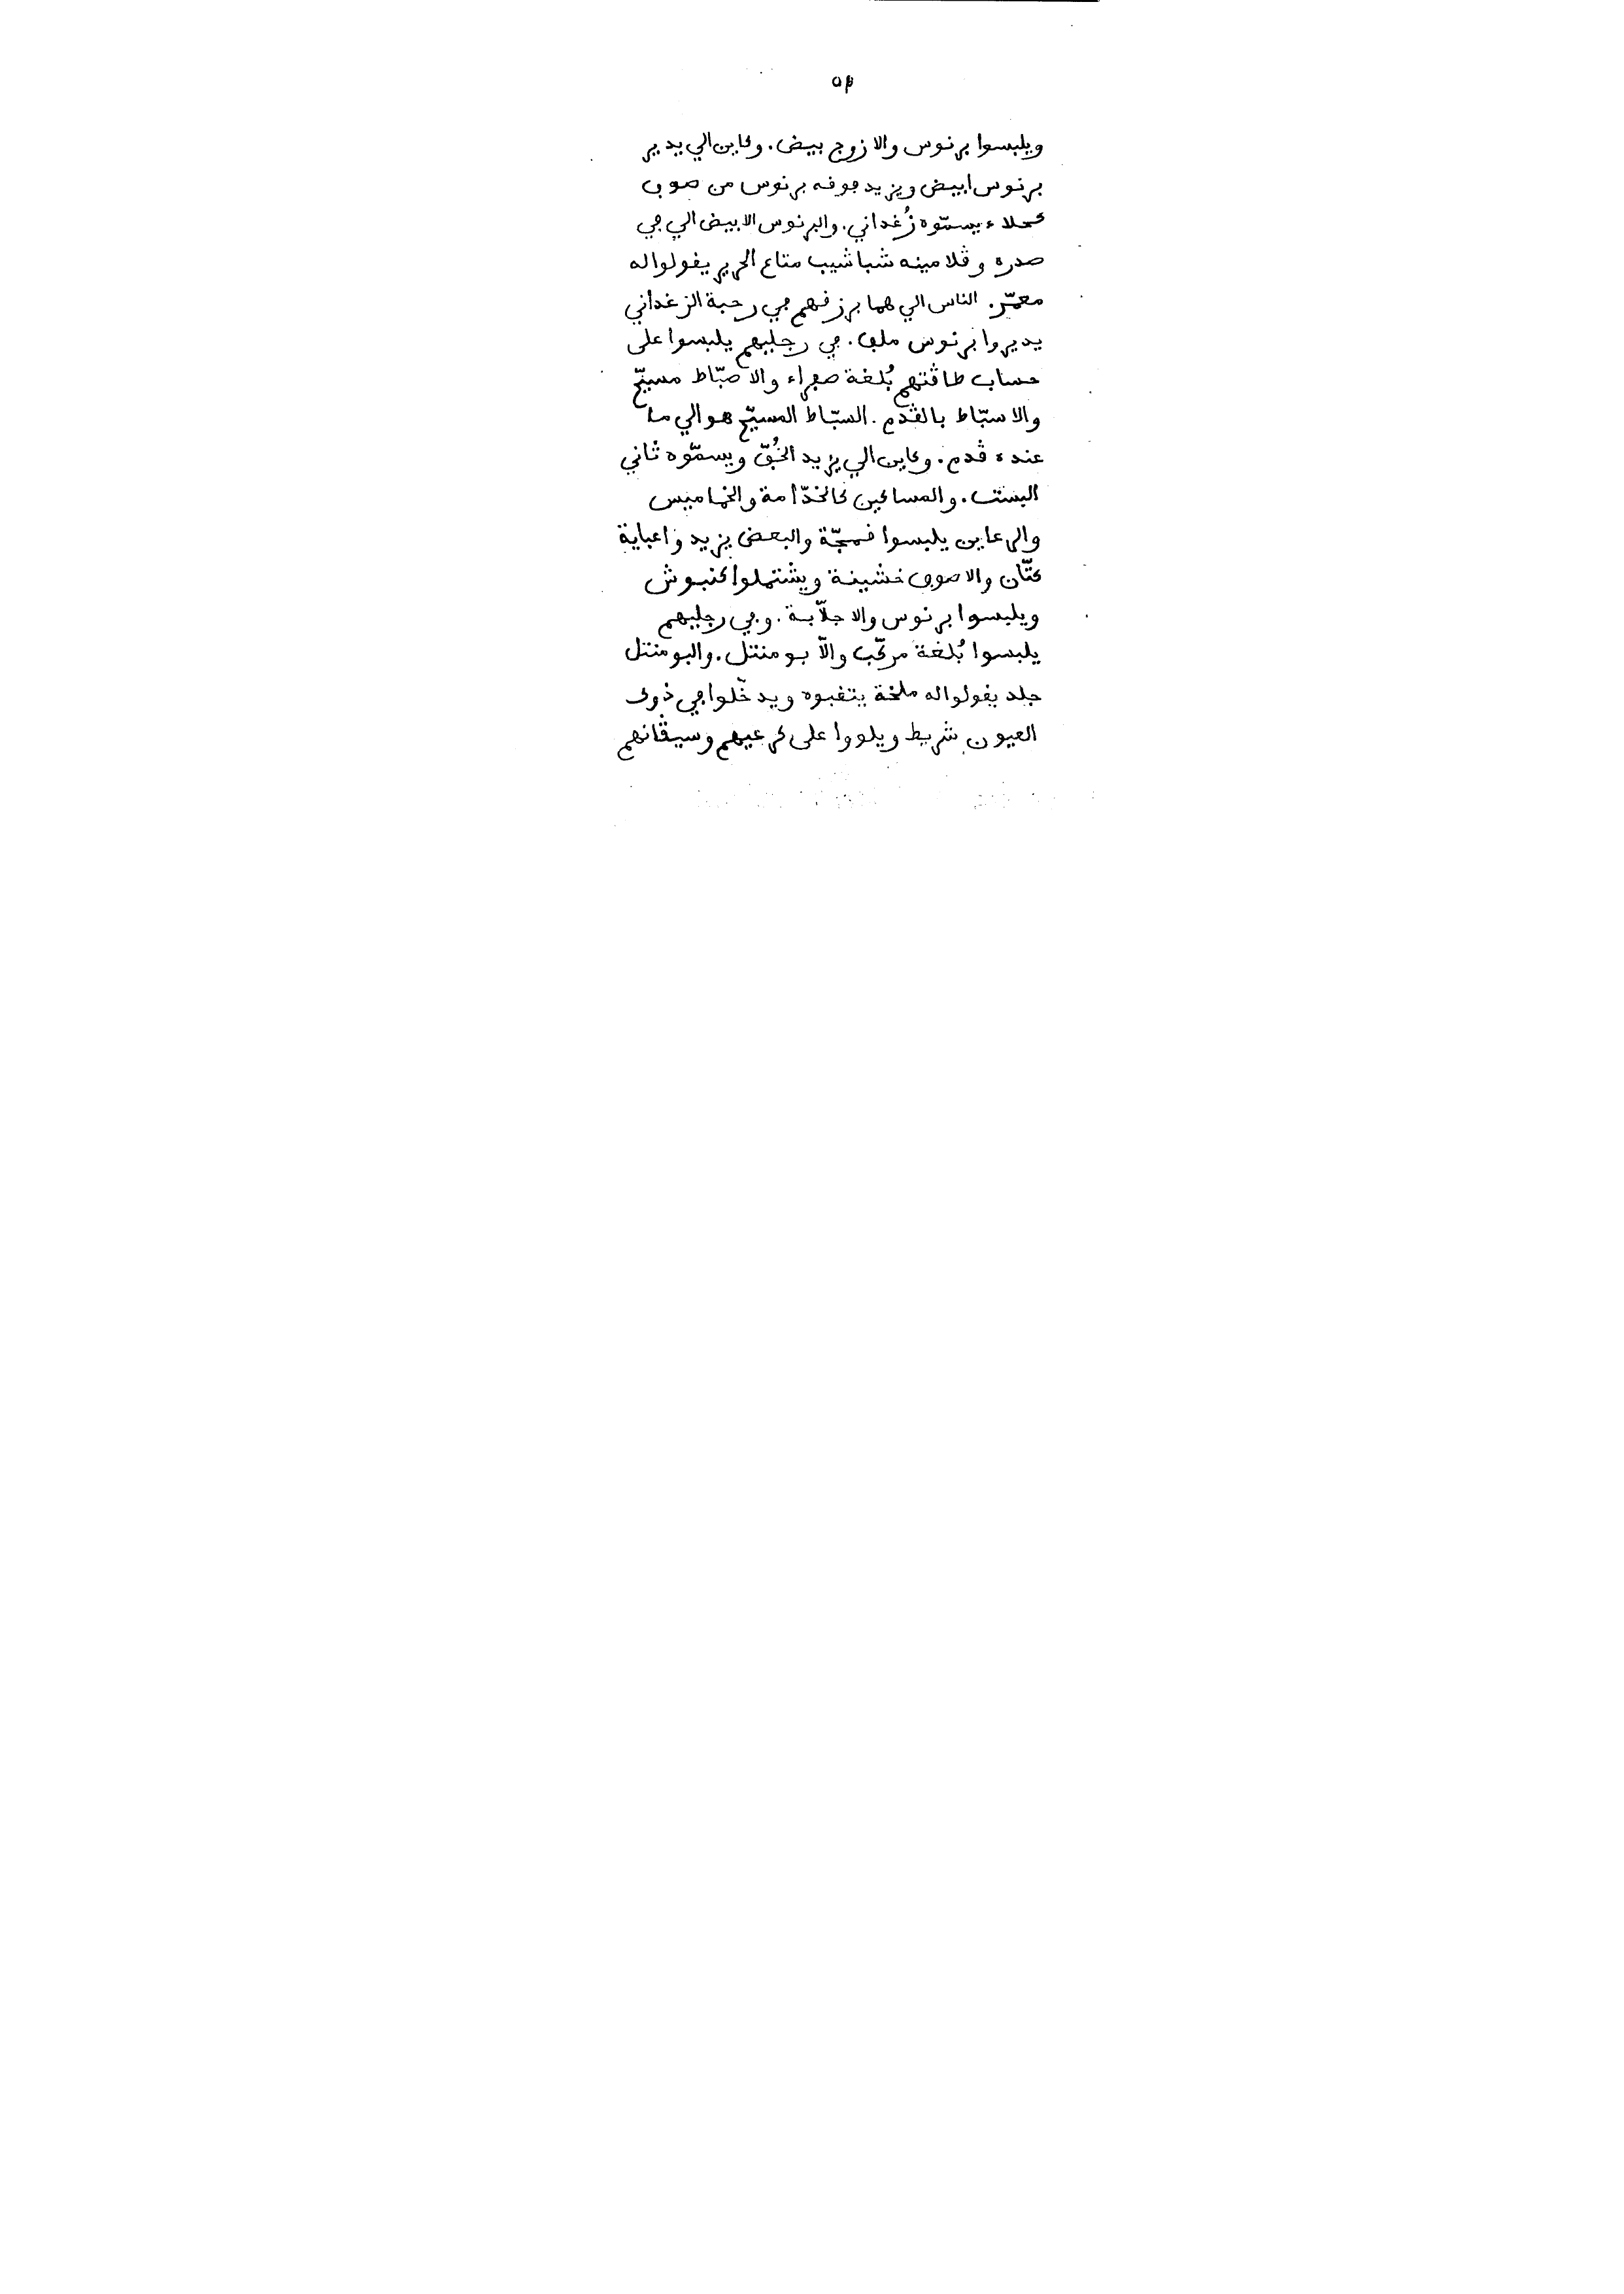 ويلبسوا برنوس والا زوج بيض. وكاين الي يدير
برنوس ابيض ويزيد فوقه برنوس من صوف
كحلاء يسمّوه زُغداني. والبرنوس الابيض الي في
صدره وڨلامينه شباشيب متاع الحرير يقولوا له
معمّر. الناس الي هما برزقهم في رحبة الزغداني
يديروا برنوس ملف. في رجليهم يلبسوا على
حساب طاڨتهم بُلغة صفراء والا صبّاط مسيّح
والا سبّاط بالڨدم. السبّاط المسيّح هو الي ما
عنده ڨدم. وكاين الي يزيد الخُفّ ويسمّوه ثاني
والمساكين كالخدّامة والخماميس
والرعاين يلبسوا قمجّة والبعض يزيدوا عباية
كتّان والا صوف خشينة ويشتملوا كنبوش
ويلبسوا برنوس والا جلاّبة. وفي رجليهم
يلبسوا بُلغة مركّب والاّ بو منتل. والبو منتل
جلد يقولوا له ملخة يثقبوه ويدخّلوا في ذوك
العيون شريط ويلووا على كرعيهم وسيڨانهم